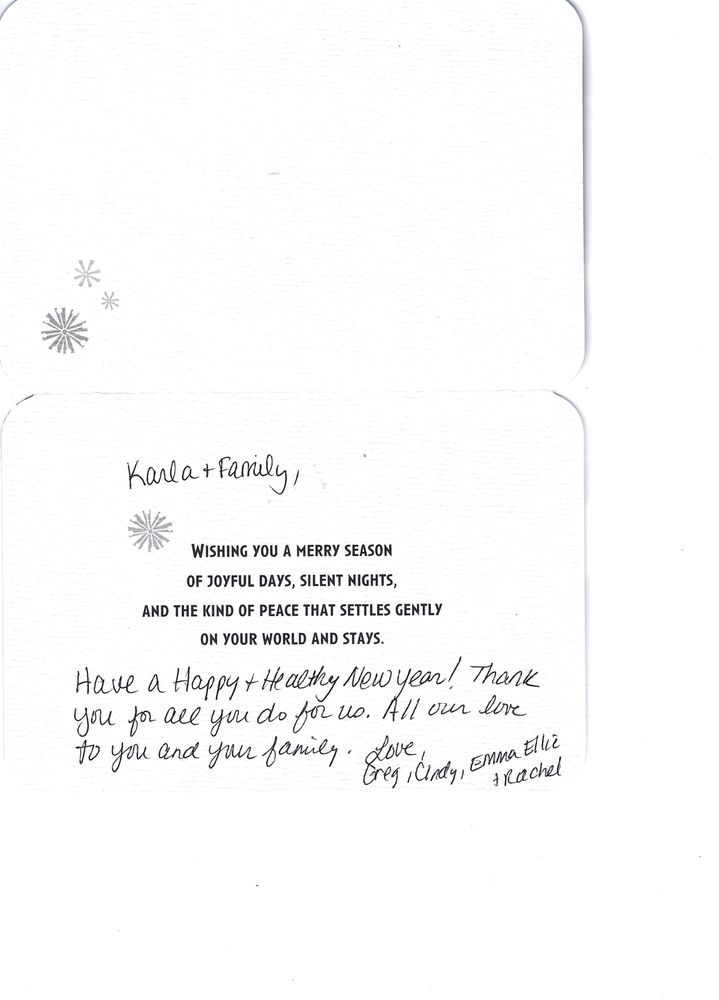 Karla + Family,
WISHING YOU A MERRY SEASON
OF JOYFUL DAYS, SILENT NIGHTS,
AND THE KIND OF PEACE THAT SETTLES GENTLY
ON YOUR WORLD AND STAYS.
Have a Happy + Healthy New Year! Thank
you for all you do for us. All our love
to you and your family. Love,
Greg, Cindy, Emma Ellie
+ Rachel